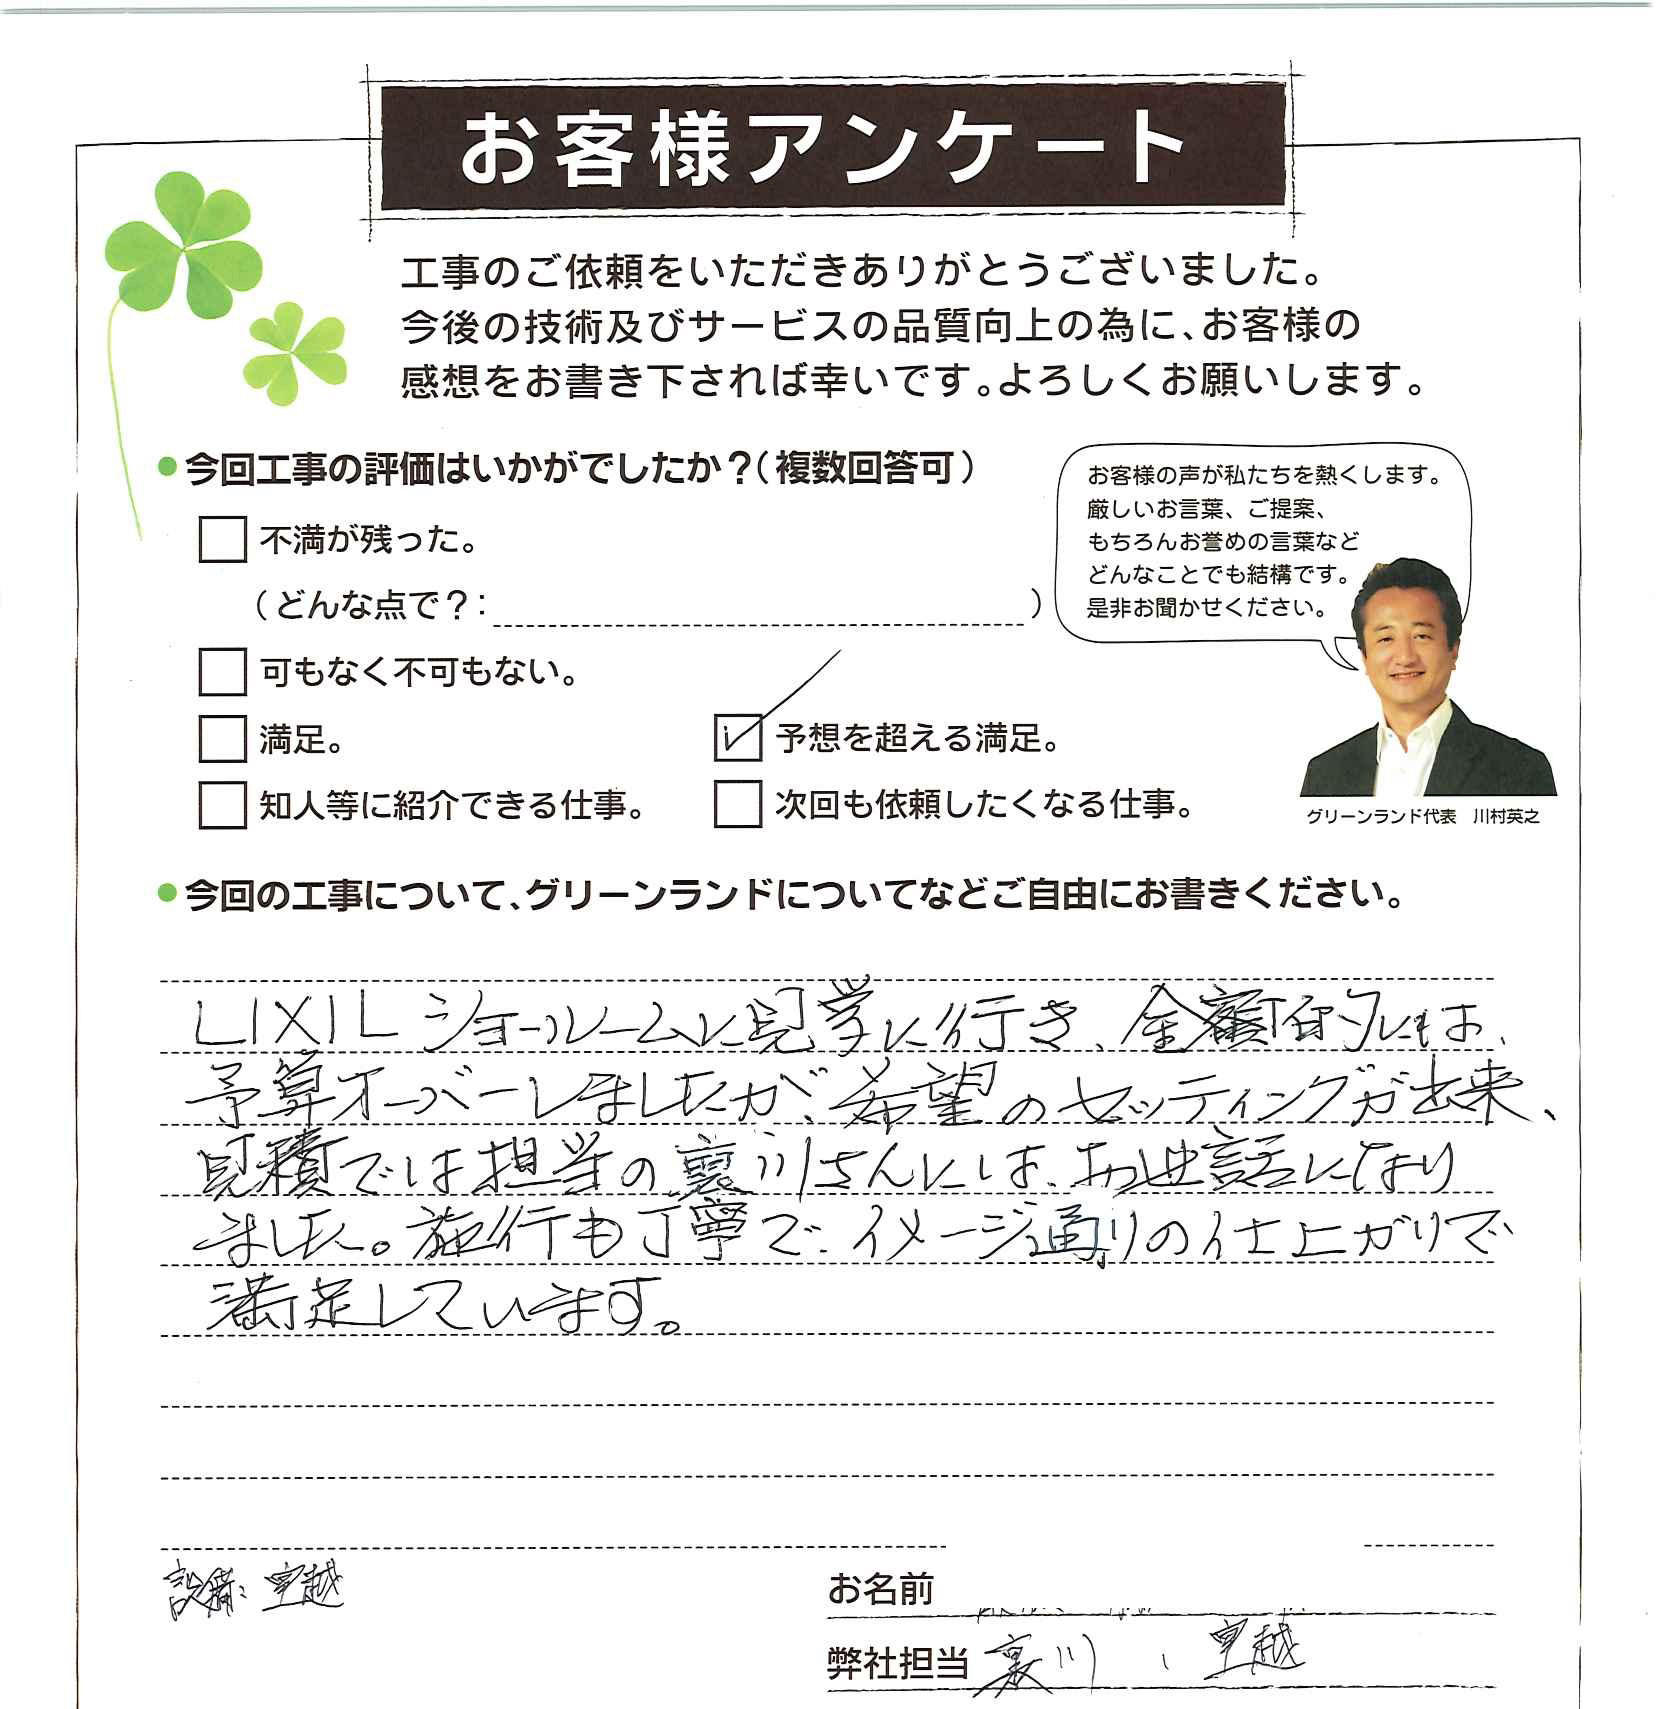 お客様アンケート
工事のご依頼をいただきありがとうございました。
今後の技術及びサービスの品質向上の為に、お客様の
感想をお書き下されば幸いです。よろしくお願いします。
●今回工事の評価はいかがでしたか？（複数回答可）
不満が残った。
（どんな点で？：　）
可もなく不可もない。
満足。
予想を超える満足。
知人等に紹介できる仕事。
次回も依頼したくなる仕事。
お客様の声が私たちを熱くします。
厳しいお言葉、ご提案、
もちろんお誉めの言葉など
どんなことでも結構です。
是非お聞かせください。
グリーンランド代表　川村英之
●今回の工事について、グリーンランドについてなどご自由にお書きください。
LIXILショールームに見学に行き、金額的には、
予算オーバーしましたが、希望のセッティングが出来、
見積では担当の裏川さんには、お世話になり
ました。施行も丁寧で、イメージ通りの仕上がりで
満足しています。
設備:
お名前
弊社担当 裏川、